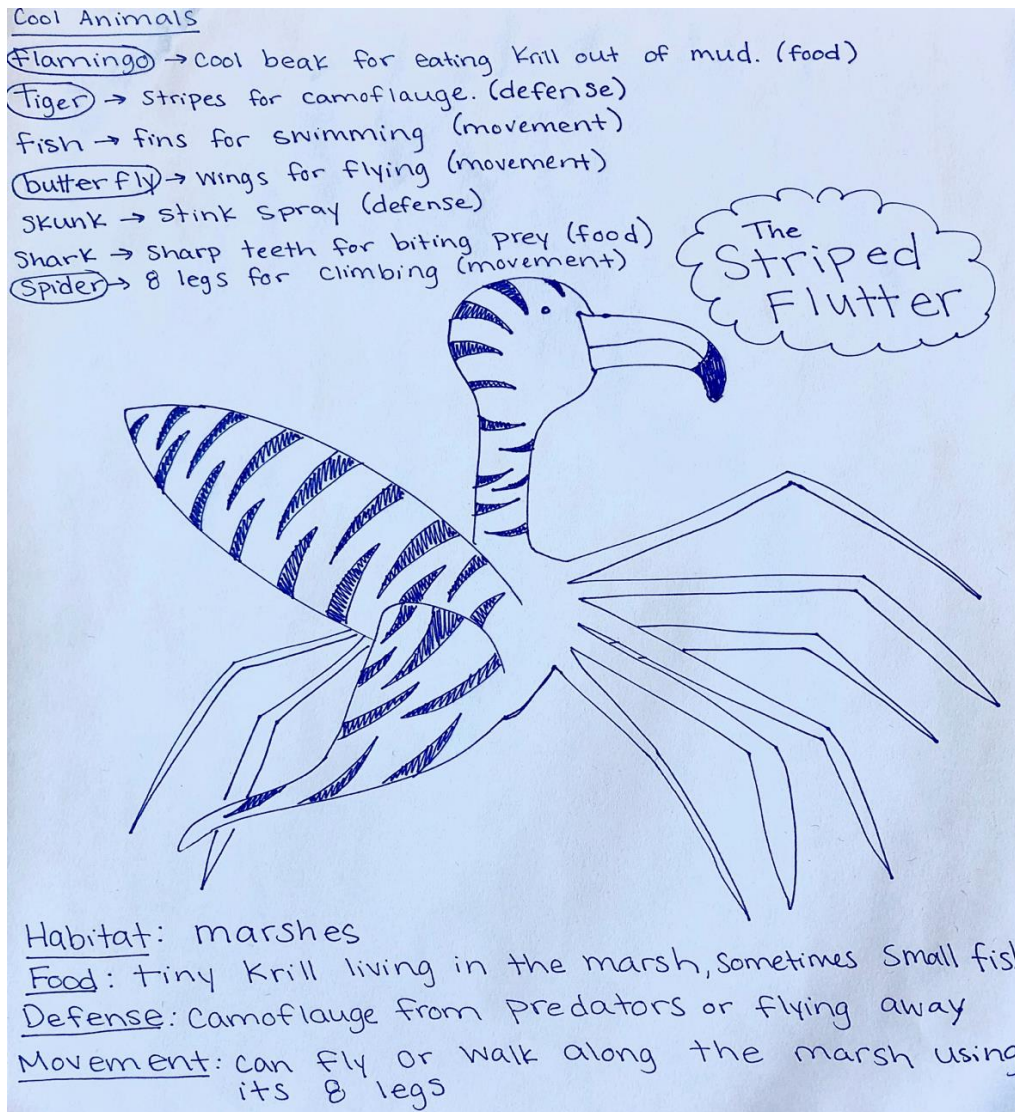 Cool Animals
Flamingo → Cool beak for eating krill out of mud. (food)
Tiger → Stripes for camoflauge. (defense)
fish → fins for swimming (movement)
butterfly → wings for flying (movement)
Skunk → Stink spray (defense)
Shark → Sharp teeth for biting prey (food)
Spider → 8 legs for climbing (movement)
The
Striped
Flutter
Habitat: marshes
Food: tiny krill living in the marsh, sometimes small fis
Defense: camoflauge from predators or flying away
Movement: can fly or walk along the marsh using
its 8 legs